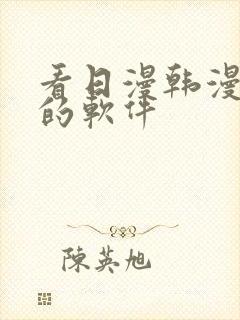 看日漫韩漫
的軟件
陳英旭